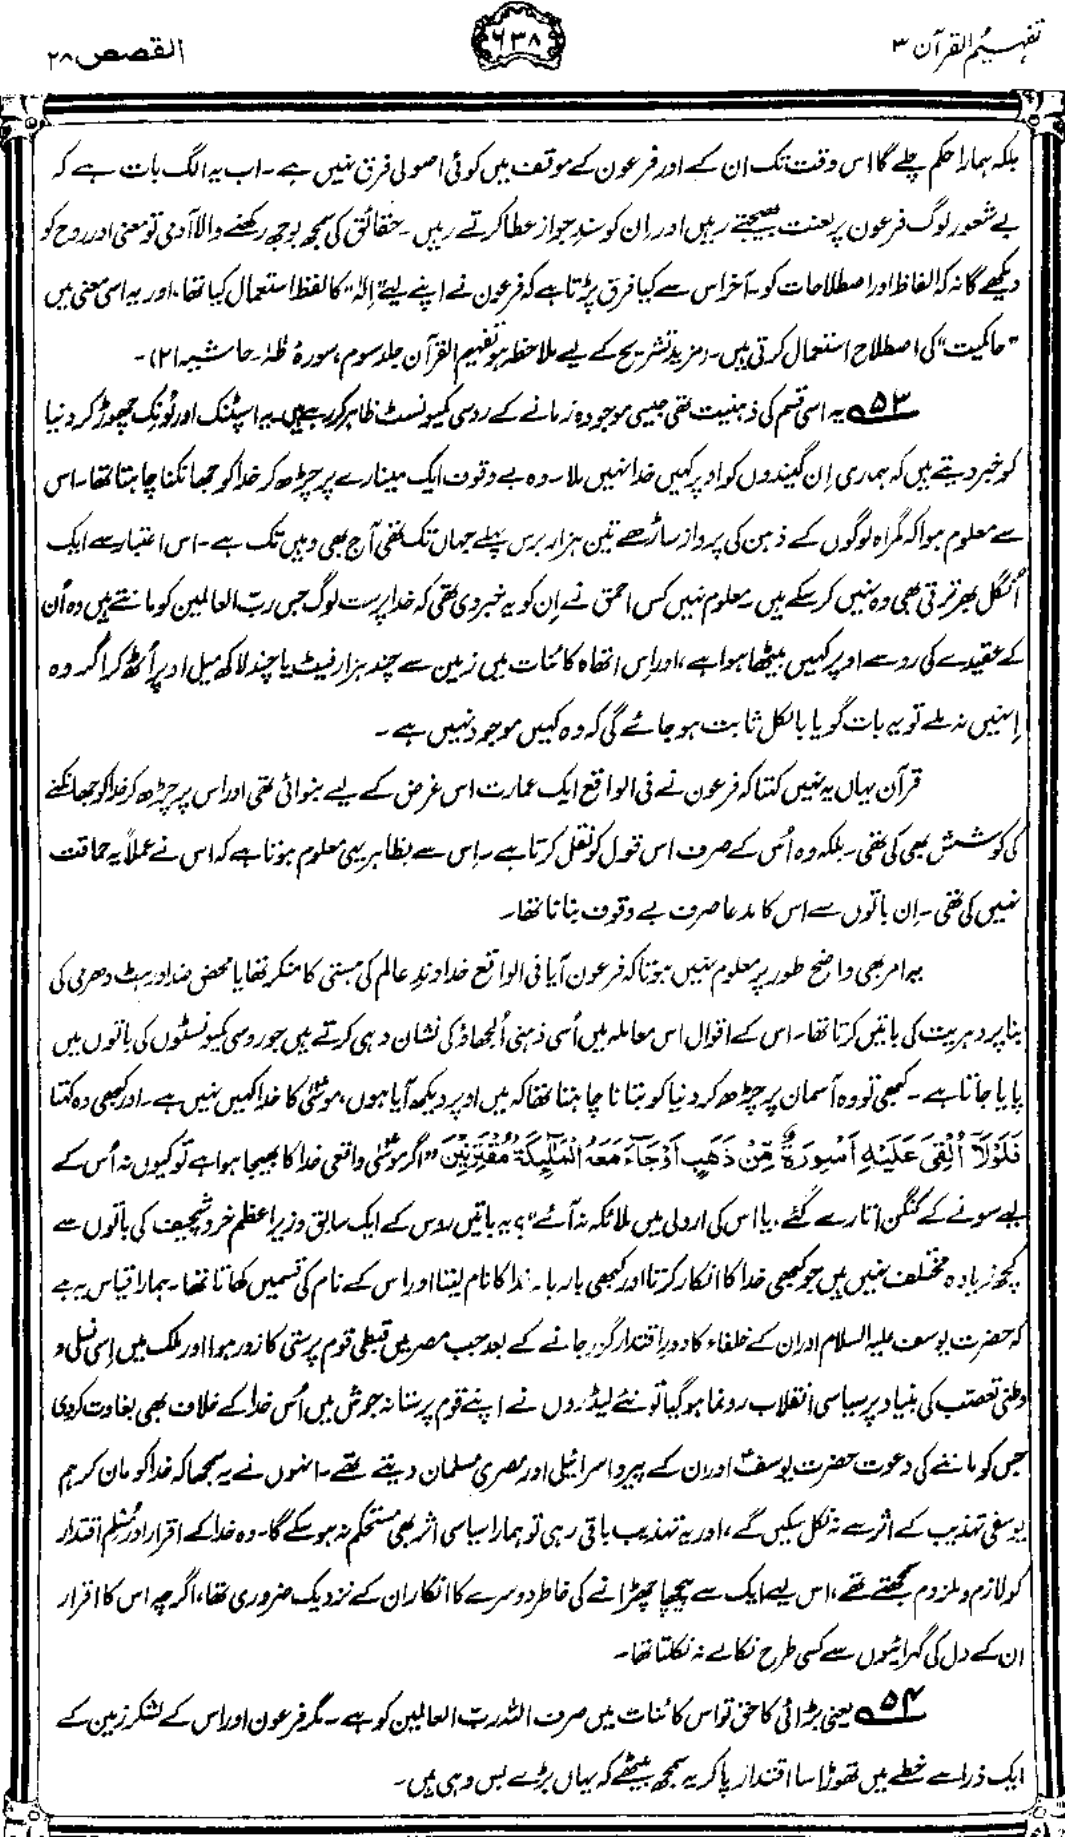 تفہیم القرآن ۳
۶۳۸
القصص ۲۸
بلکہ ہمارا حکم چلے گا اس وقت تک ان کے اور فرعون کے موقف میں کوئی اصولی فرق نہیں ہے۔ اب یہ الگ بات ہے کہ
بے شعور لوگ فرعون پر لعنت بھیجتے رہیں اور اِن کو سندِ جواز عطا کرتے رہیں۔ حقائق کی سمجھ بوجھ رکھنے والا آدمی تو معنی اور روح کو
دیکھے گا نہ کہ الفاظ اور اصطلاحات کو۔ آخر اس سے کیا فرق پڑتا ہے کہ فرعون نے اپنے لیے ”اِلٰہ“ کا لفظ استعمال کیا تھا، اور یہ اسی معنی میں
”حاکمیت“ کی اصطلاح استعمال کرتی ہیں۔ (مزید تشریح کے لیے ملاحظہ ہو تفہیم القرآن جلد سوم، سورۂ طٰہٰ۔ حاشیہ ۲۱)۔
۵۳ یہ اسی قسم کی ذہنیت تھی جیسی موجودہ زمانے کے روسی کمیونسٹ ظاہر کر رہے ہیں۔ یہ اسپٹنک اور لُونِک چھوڑ کر دنیا
کو خبر دیتے ہیں کہ ہماری اِن گیندوں کو اوپر کہیں خدا نہیں ملا۔ وہ بے وقوف ایک مینارے پر چڑھ کر خدا کو جھانکنا چاہتا تھا۔ اس
سے معلوم ہوا کہ گمراہ لوگوں کے ذہن کی پرواز ساڑھے تین ہزار برس پہلے جہاں تک تھی آج بھی وہیں تک ہے۔ اس اعتبار سے ایک
اُنگل بھر ترقی بھی وہ نہیں کر سکے ہیں۔ معلوم نہیں کس احمق نے اِن کو یہ خبر دی تھی کہ خدا پرست لوگ جس ربّ العالمین کو مانتے ہیں وہ اُن
کے عقیدے کی رو سے اوپر کہیں بیٹھا ہوا ہے، اور اِس اتھاہ کائنات میں زمین سے چند ہزار فیٹ یا چند لاکھ میل اوپر اُٹھ کر اگر وہ
اِنہیں نہ ملے تو یہ بات گویا بالکل ثابت ہو جائے گی کہ وہ کہیں موجود نہیں ہے۔
قرآن یہاں یہ نہیں کہتا کہ فرعون نے فی الواقع ایک عمارت اس غرض کے لیے بنوائی تھی اور اس پر چڑھ کر خدا کو جھانکنے
کی کوشش بھی کی تھی۔ بلکہ وہ اُس کے صرف اس قول کو نقل کرتا ہے۔ اِس سے بظاہر یہی معلوم ہوتا ہے کہ اس نے عملاً یہ حماقت
نہیں کی تھی۔ اِن باتوں سے اس کا مدعا صرف بے وقوف بنانا تھا۔
یہ امر بھی واضح طور پر معلوم نہیں ہوتا کہ فرعون آیا فی الواقع خداوندِ عالم کی ہستی کا منکر تھا یا محض ضد اور ہٹ دھرمی کی
بنا پر دہریت کی باتیں کرتا تھا۔ اس کے اقوال اس معاملہ میں اُسی ذہنی اُلجھاؤ کی نشان دہی کرتے ہیں جو روسی کمیونسٹوں کی باتوں میں
پایا جاتا ہے۔ کبھی تو وہ آسمان پر چڑھ کر دنیا کو بتانا چاہتا تھا کہ میں اوپر دیکھ آیا ہوں، موسٰیؑ کا خدا کہیں نہیں ہے۔ اور کبھی وہ کہتا
فَلَوْلَآ اُلْقِیَ عَلَیْہِ اَسْوِرَۃٌ مِّنْ ذَھَبٍ اَوْ جَآءَ مَعَہُ الْمَلٰٓئِکَۃُ مُقْتَرِنِیْنَ ”اگر موسٰیؑ واقعی خدا کا بھیجا ہوا ہے تو کیوں نہ اُس کے
لیے سونے کے کنگن اُتارے گئے، یا اس کی اردلی میں ملائکہ نہ آئے“؟ یہ باتیں روس کے ایک سابق وزیر اعظم خروشچیف کی باتوں سے
کچھ زیادہ مختلف نہیں ہیں جو کبھی خدا کا انکار کرتا اور کبھی بار بار خدا کا نام لیتا اور اس کے نام کی قسمیں کھاتا تھا۔ ہمارا قیاس یہ ہے
کہ حضرت یوسف علیہ السلام اور ان کے خلفاء کا دورِ اقتدار گزر جانے کے بعد جب مصر میں قبطی قوم پرستی کا زور ہوا اور ملک میں اِسی نسلی و
وطنی تعصّب کی بنیاد پر سیاسی انقلاب رونما ہو گیا تو نئے لیڈروں نے اپنے قوم پرستانہ جوش میں اُس خدا کے خلاف بھی بغاوت کر دی
جس کو ماننے کی دعوت حضرت یوسفؑ اور ان کے پیرو اسرائیلی اور مصری مسلمان دیتے تھے۔ انہوں نے یہ سمجھا کہ خدا کو مان کر ہم
یوسفی تہذیب کے اثر سے نہ نکل سکیں گے، اور یہ تہذیب باقی رہی تو ہمارا سیاسی اثر بھی مستحکم نہ ہو سکے گا۔ وہ خدا کے اقرار اور مُسلم اقتدار
کو لازم و ملزوم سمجھتے تھے، اس لیے ایک سے پیچھا چھڑانے کی خاطر دوسرے کا انکار ان کے نزدیک ضروری تھا، اگرچہ اس کا اقرار
ان کے دل کی گہرائیوں سے کسی طرح نکالے نہ نکلتا تھا۔
۵۴ یعنی بڑائی کا حق تو اس کائنات میں صرف اللہ ربّ العالمین کو ہے۔ مگر فرعون اور اس کے لشکر زمین کے
ایک ذرا سے خطے میں تھوڑا سا اقتدار پا کر یہ سمجھ بیٹھے کہ یہاں بڑے بس وہی ہیں۔